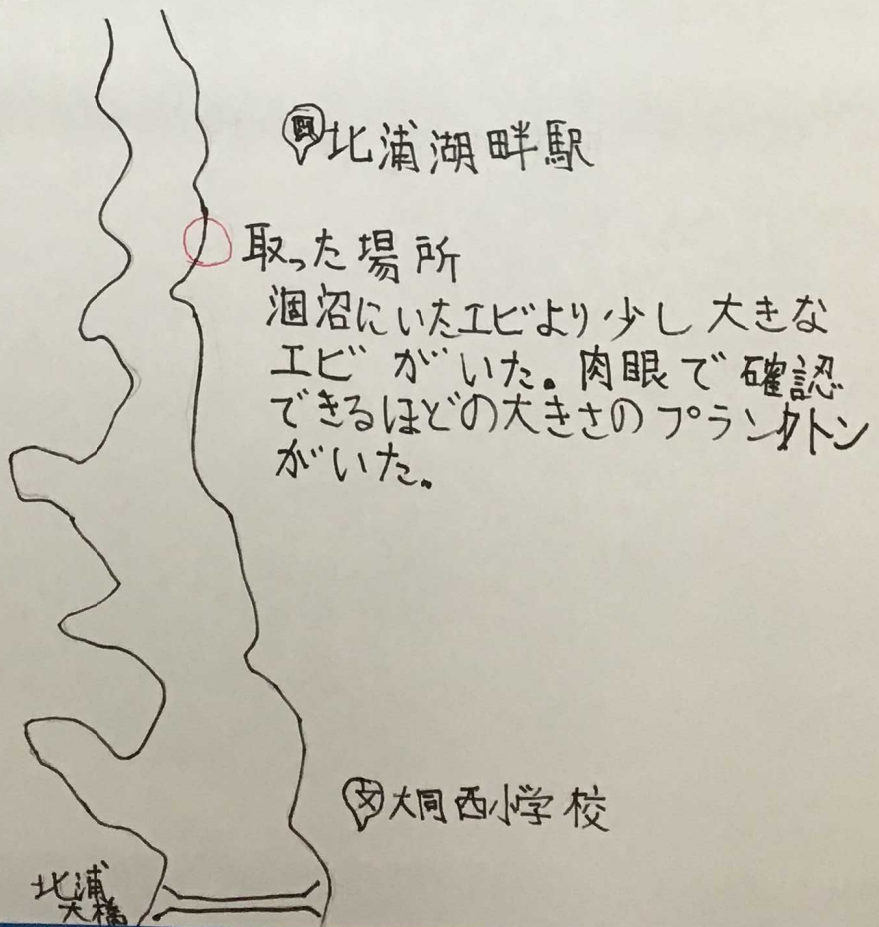 北浦湖畔駅
取った場所
涸沼にいたエビより少し大きな
エビがいた。肉眼で確認
できるほどの大きさのプランクトン
がいた。
文
大同西小学校
北浦
大橋